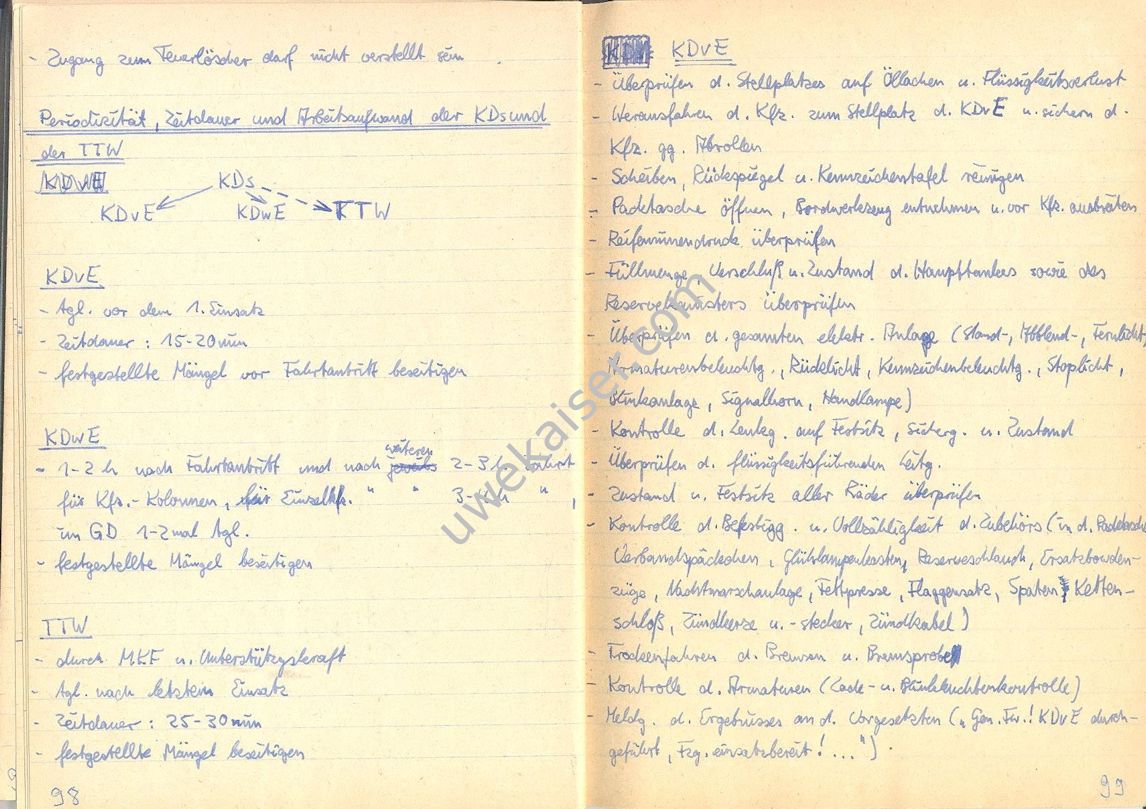 - Zugang zum Feuerlöscher darf nicht verstellt sein.
Periodizität, Zeitdauer und Arbeitsaufwand der KDs und
der TTW
KDvE KDs
KDvE KDwE TTW
KDvE
- tgl. vor dem 1. Einsatz
- Zeitdauer: 15-20 min
- festgestellte Mängel vor Fahrtantritt beseitigen
KDwE
weiteren
- 1-2 h nach Fahrtantritt und nach jeweils 2-3 h Fahrt
für Kfz.-Kolonnen, für Einzelkfz. " " 3- h ",
im GD 1-2 mal tgl.
- festgestellte Mängel beseitigen
TTW
- durch MKF u. Unterstützgskraft
- tgl. nach letztem Einsatz
- Zeitdauer: 25-30 min
- festgestellte Mängel beseitigen
98
KDvE
- Überprüfen d. Stellplatzes auf Öllachen u. Flüssigkeitsverlust
- Herausfahren d. Kfz. zum Stellplatz d. KDvE u. sichern d.
Kfz. gg. Abrollen
- Scheiben, Rückspiegel u. Kennzeichentafel reinigen
- Packtasche öffnen, Bordwerkzeug entnehmen u. vor Kfz. ausbreiten
- Reifeninnendruck überprüfen
- Füllmenge, Verschluß u. Zustand d. Haupttankes sowie des
Reservekanisters überprüfen
- Überprüfen d. gesamten elektr. Anlage (Stand-, Abblend-, Fernlicht,
Armaturenbeleuchtg., Rücklicht, Kennzeichenbeleuchtg., Stoplicht,
Blinkanlage, Signalhorn, Handlampe)
- Kontrolle d. Lenkg. auf Festsitz, Sicherg. u. Zustand
- Überprüfen d. flüssigkeitsführenden Leitg.
- Zustand u. Festsitz aller Räder überprüfen
- Kontrolle d. Befestigg. u. Vollzähligkeit d. Zubehörs (in d. Packtasche
Verbandspäckchen, Glühlampenkasten, Reserveschlauch, Ersatzbowden-
züge, Nachtmarschanlage, Fettpresse, Flaggensatz, Spaten, Ketten-
schloß, Zündkerze u. -stecker, Zündkabel)
- Trockenfahren d. Bremsen u. Bremsprobe
- Kontrolle d. Armaturen (Lade- u. Blinkleuchtenkontrolle)
- Meldg. d. Ergebnisses an d. Vorgesetzten („Gen. Fw.! KDvE durch-
geführt, Fzg. einsatzbereit!...")
99
uwekaiser.com